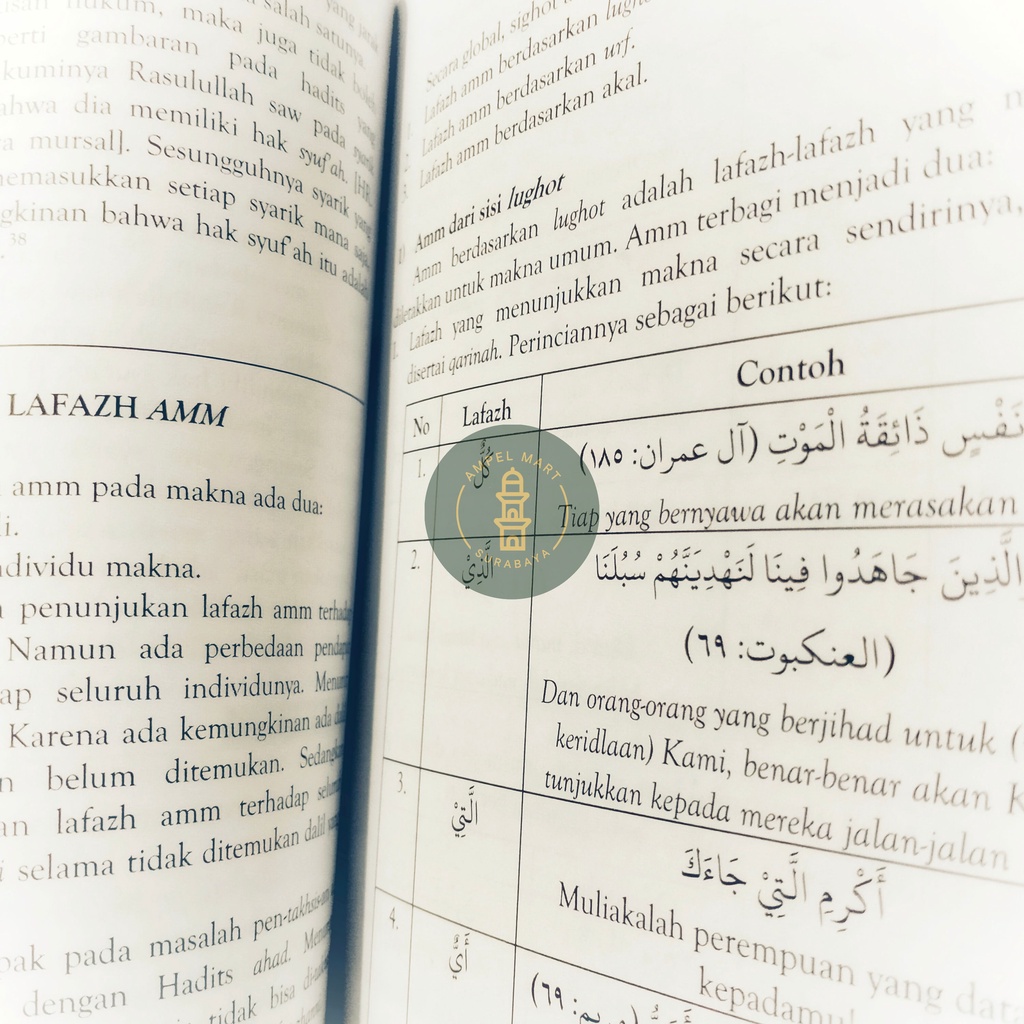 salah satunya.
hukum, maka juga tidak boleh
gambaran pada hadits yang
Rasulullah saw pada syarik
dia memiliki hak syuf'ah. [HR.
mursal]. Sesungguhnya syarik yang
setiap syarik mana saja,
bahwa hak syuf'ah itu adalah
38
LAFAZH AMM
amm pada makna ada dua:
makna.
penunjukan lafazh amm terhadap
Namun ada perbedaan
seluruh individunya.
Karena ada kemungkinan ada
belum ditemukan.
lafazh amm terhadap
selama tidak ditemukan dalil yang
pada masalah pen-takhsis-an
dengan Hadits ahad.
tidak bisa
Secara global, sighot
Lafazh amm berdasarkan
2. Lafazh amm berdasarkan urf.
3. Lafazh amm berdasarkan akal.
Amm dari sisi lughot
Amm berdasarkan lughot adalah lafazh-lafazh yang
diletakkan untuk makna umum. Amm terbagi menjadi dua:
Lafazh yang menunjukkan makna secara sendirinya,
disertai qarinah. Perinciannya sebagai berikut:
No Lafazh Contoh
1. كُلُّ نَفْسٍ ذَائِقَةُ الْمَوْتِ (آل عمران: ١٨٥)
Tiap yang bernyawa akan merasakan
AMPEL MART
SURABAYA
2. الَّذِيْ الَّذِينَ جَاهَدُوا فِينَا لَنَهْدِيَنَّهُمْ سُبُلَنَا
(العنكبوت: ٦٩)
Dan orang-orang yang berjihad untuk (
keridlaan) Kami, benar-benar akan
tunjukkan kepada mereka jalan-jalan
3. الَّتِيْ أَكْرِمِ الَّتِيْ جَاءَكَ
Muliakalah perempuan yang
kepadamu!
4. أَيُّ
(مريم: ٦٩)